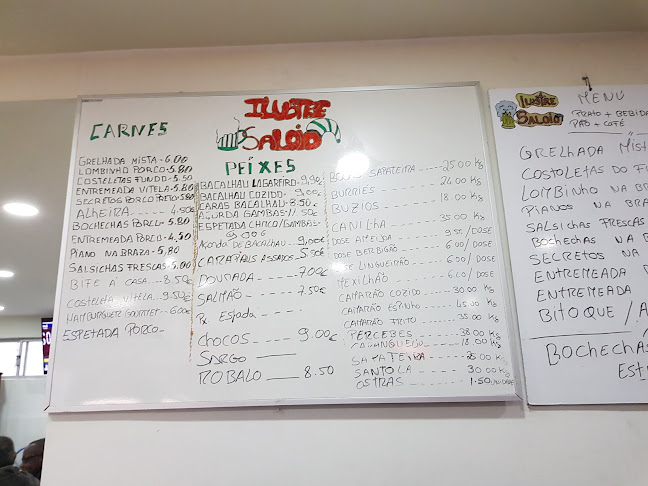 CARNES
GRELHADA MISTA - 6.00
LOMBINHO PORCO - 5.80
COSTELETAS FUNDO - 5.50
ENTREMEADA VITELA - 5.80
SECRETOS PORCO PRETO - 5.80
ALHEIRA ----- 4.50€
BOCHECHAS PORCO - 5.80
ENTREMEADA PORCO - 4,50
PIANO NA BRAZA - 5,80
SALSICHAS FRESCAS - 5.00
BIFE A CASA --- 8.50€
COSTELETA VITELA - 9.50€
HAMBURGUETE GOURMET - 6.00€
ESPETADA PORCO -
ILUSTRE
SALOIO
PEÍXES
BACALHAU LAGAREIRO - 9,90€
BACALHAU COZIDO - 9,00€
CARAS BACALHAU - 8.50€
AÇORDA GAMBAS - 11.50€
ESPETADA CHOCO/GAMBAS -
9,90€
Açorda de BACALHAU - 9,00€
CARAPAUS ASSADOS - 5.50€
DOURADA ---- 7.00€
SALMÃO ---- 7.50€
Px Espada ----
CHOCOS --- 9.00€
SARGO ----
ROBALO —— 8.50
SAPATEIRA ---- 25.00 Kg
BURRIÉS ---- 24.00 Kg
BUZIOS ---- 18.00 Kg
CANILHA ---- 35.00 Kg
DOSE AMEIJOA ---- 9.50/DOSE
DOSE BERBIGÃO ---- 6.00/DOSE
LINGUEIRÃO ---- 6.00/DOSE
MEXILHÃO ---- 6.00/DOSE
CAMARÃO COZIDO ---- 30.00 Kg
CAMARÃO ESPINHO ---- 45,00 Kg
CAMARÃO FRITO ---- 35.00 Kg
PERCEBES ---- 38.00 Kg
CARANGUEIJO ---- 18.00 Kg
SAPATEIRA ---- 25.00 Kg
SANTOLA ---- 30.00 Kg
OSTRAS ---- 1.50 UNIDADE
ILUSTRE
SALOIO
MENÚ
PRATO + BEBIDA
PÃO + CAFÉ
GRELHADA MIST
COSTOLETAS DO F
LOMBINHO NA BR
PIANOS NA BRA
SALSICHAS FRESCAS
BOCHECHAS NA B
SECRETOS NA B
ENTREMEADA
ENTREMEADA
BITOQUE / A
BOCHECHAS
EST